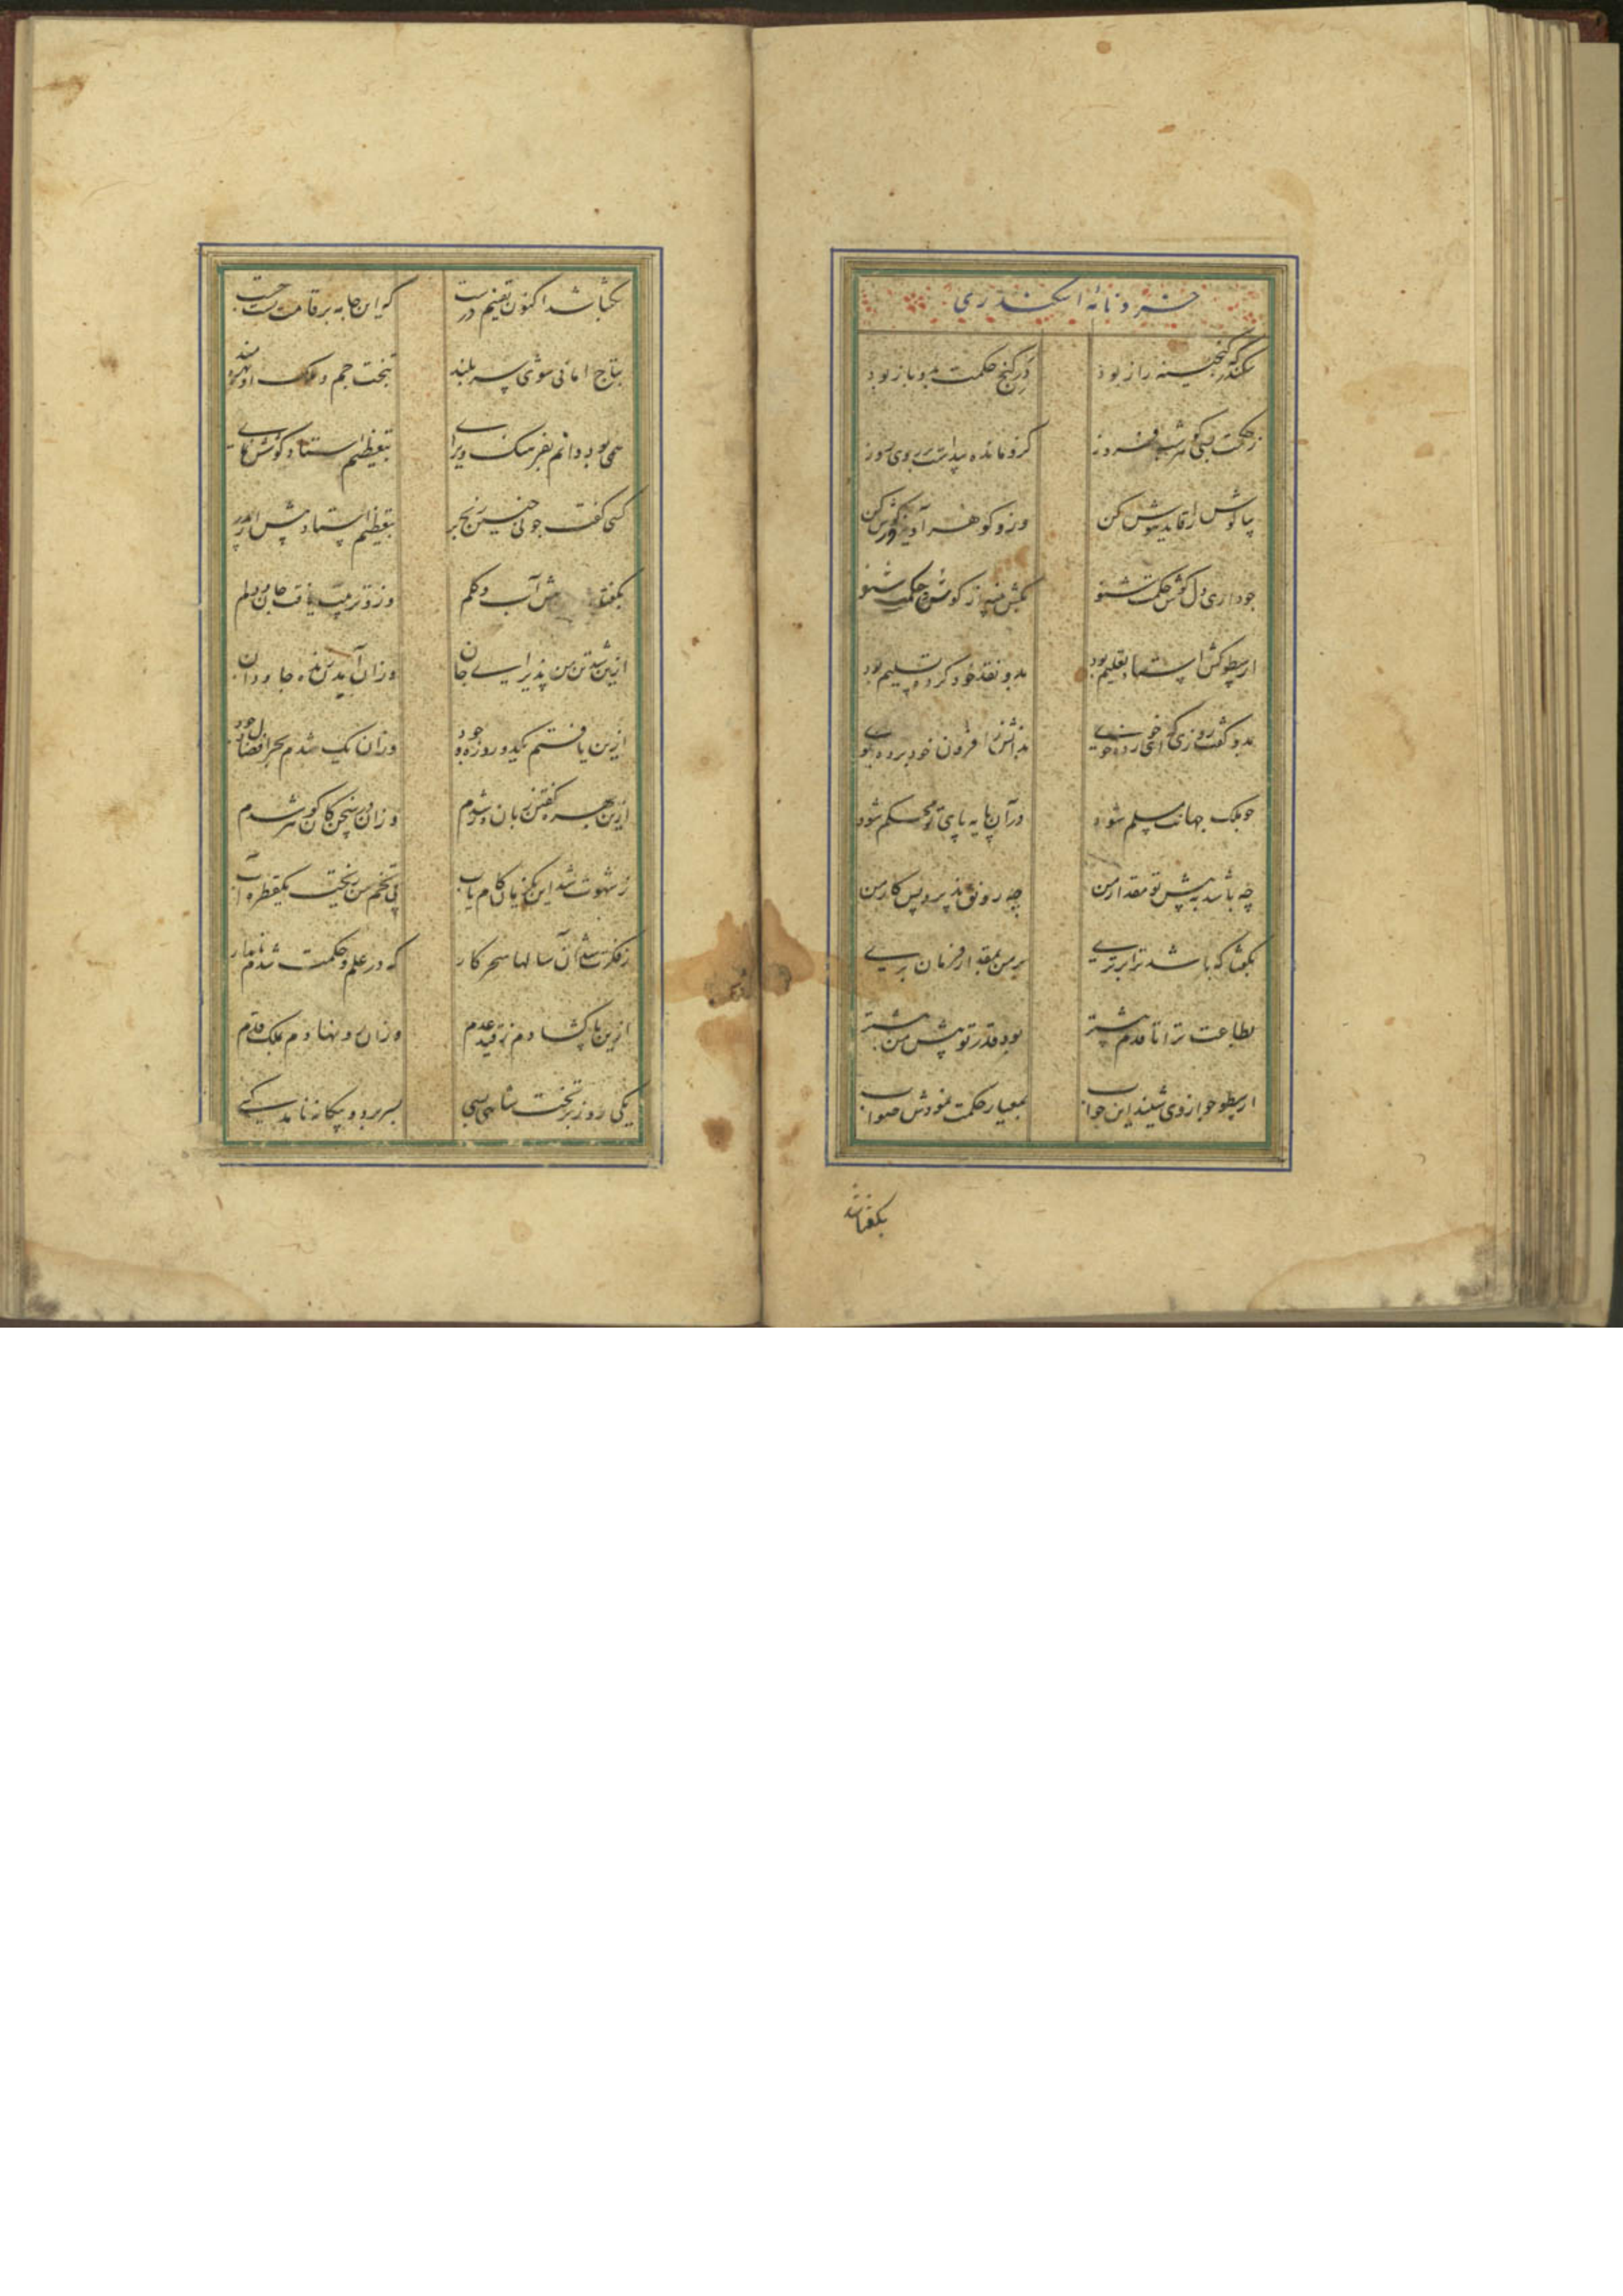 خردنامهٔ اسکندری
سکندر که گنجینهٔ راز بود در گنج حکمت بدو باز بود
ز حکمت بسی گوهر شب فروز کزو مانده پیداست بر روی روز
بیا گوش را قاید هوش کن وزو گوهر آویزهٔ گوش کن
چو داری دل گوش حکمت شنو بکش پنبه از گوش و حکمت شنو
ارسطو کش استاد تعلیم بود بدو نقد خود کرده تسلیم بود
بدو گفت روزی که ای خرده جوی بدانش ز اقران خود برده گوی
چو ملک جهانت مسلم شود در آن پایه پای تو محکم شود
چه باشد به پیش تو مقدار من چه رونق پذیرد ز تو کار من
بگفتا که باشد ترا برتری بر من بمقدار فرمان بری
بطاعت ترا تا قدم پیشتر بود قدر تو پیش من بیشتر
ارسطو چو از وی شنید این جواب بمعیار حکمت نمودش صواب
بگفتا شد
بگفتا شد اکنون یقینم درست که این جامه بر قامت تست چست
بتاج امانی شوی سربلند بتخت جم و ملک او بهره مند
همی بود دانم بفرهنگ و رای بتعظیم استاد کوشش نمای
کسی گفت چونی چنین رنج بر بتعظیم استاد بیش از پدر
بگفتا آب و گلم وزو تربیت یافت جان و دلم
ازین شد تن من پذیرای جان وزان آمدم زندهٔ جاودان
ازین یافتم یکدو روزه وجود وزان یک شدم بحر افضال و جود
ازین بهر گفتن زبان ور شدم وزان در سخن کان گوهر شدم
ز شهوت شد این یکزمان کام یاب پی تخم من ریخت یکقطره آب
ز فکرت شد آن سالها سحر کار که در علم و حکمت شدم نامدار
ازین پا گشادم ز قید عدم وزان رو نهادم بملک قدم
یکی روز بر تخت شاهی بسی بسر برد و بیگانه نامد کسی